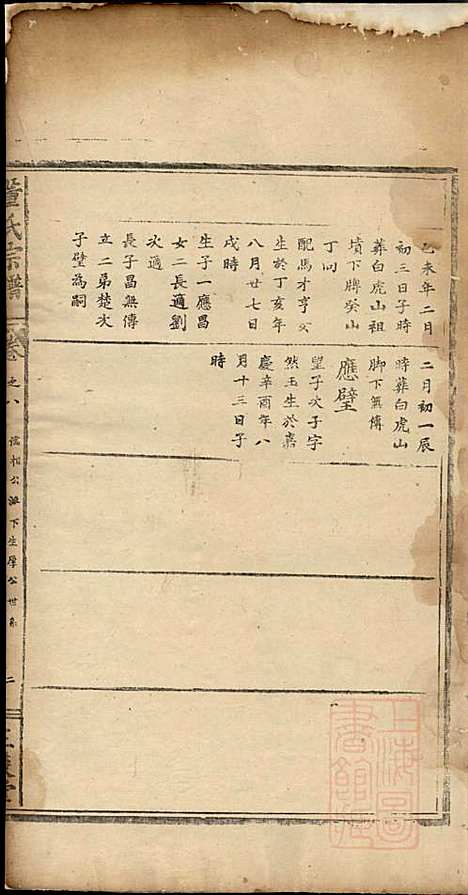 乙未年二月
初三日子時
葬白虎山祖
墳下牌癸山
丁向
配馬才亨女
生於丁亥年
八月廿七日
戌時
生子一應昌
女二長適劉
次適
長子昌無傳
立二弟楚次
子璧為嗣
二月初一辰
時葬白虎山
脚下無傳
應璧
望子次子字
然玉生於嘉
慶辛酉年八
月十三日子
時
董氏宗譜
卷之八
公派下生厚公世系
二
上海圖書館藏